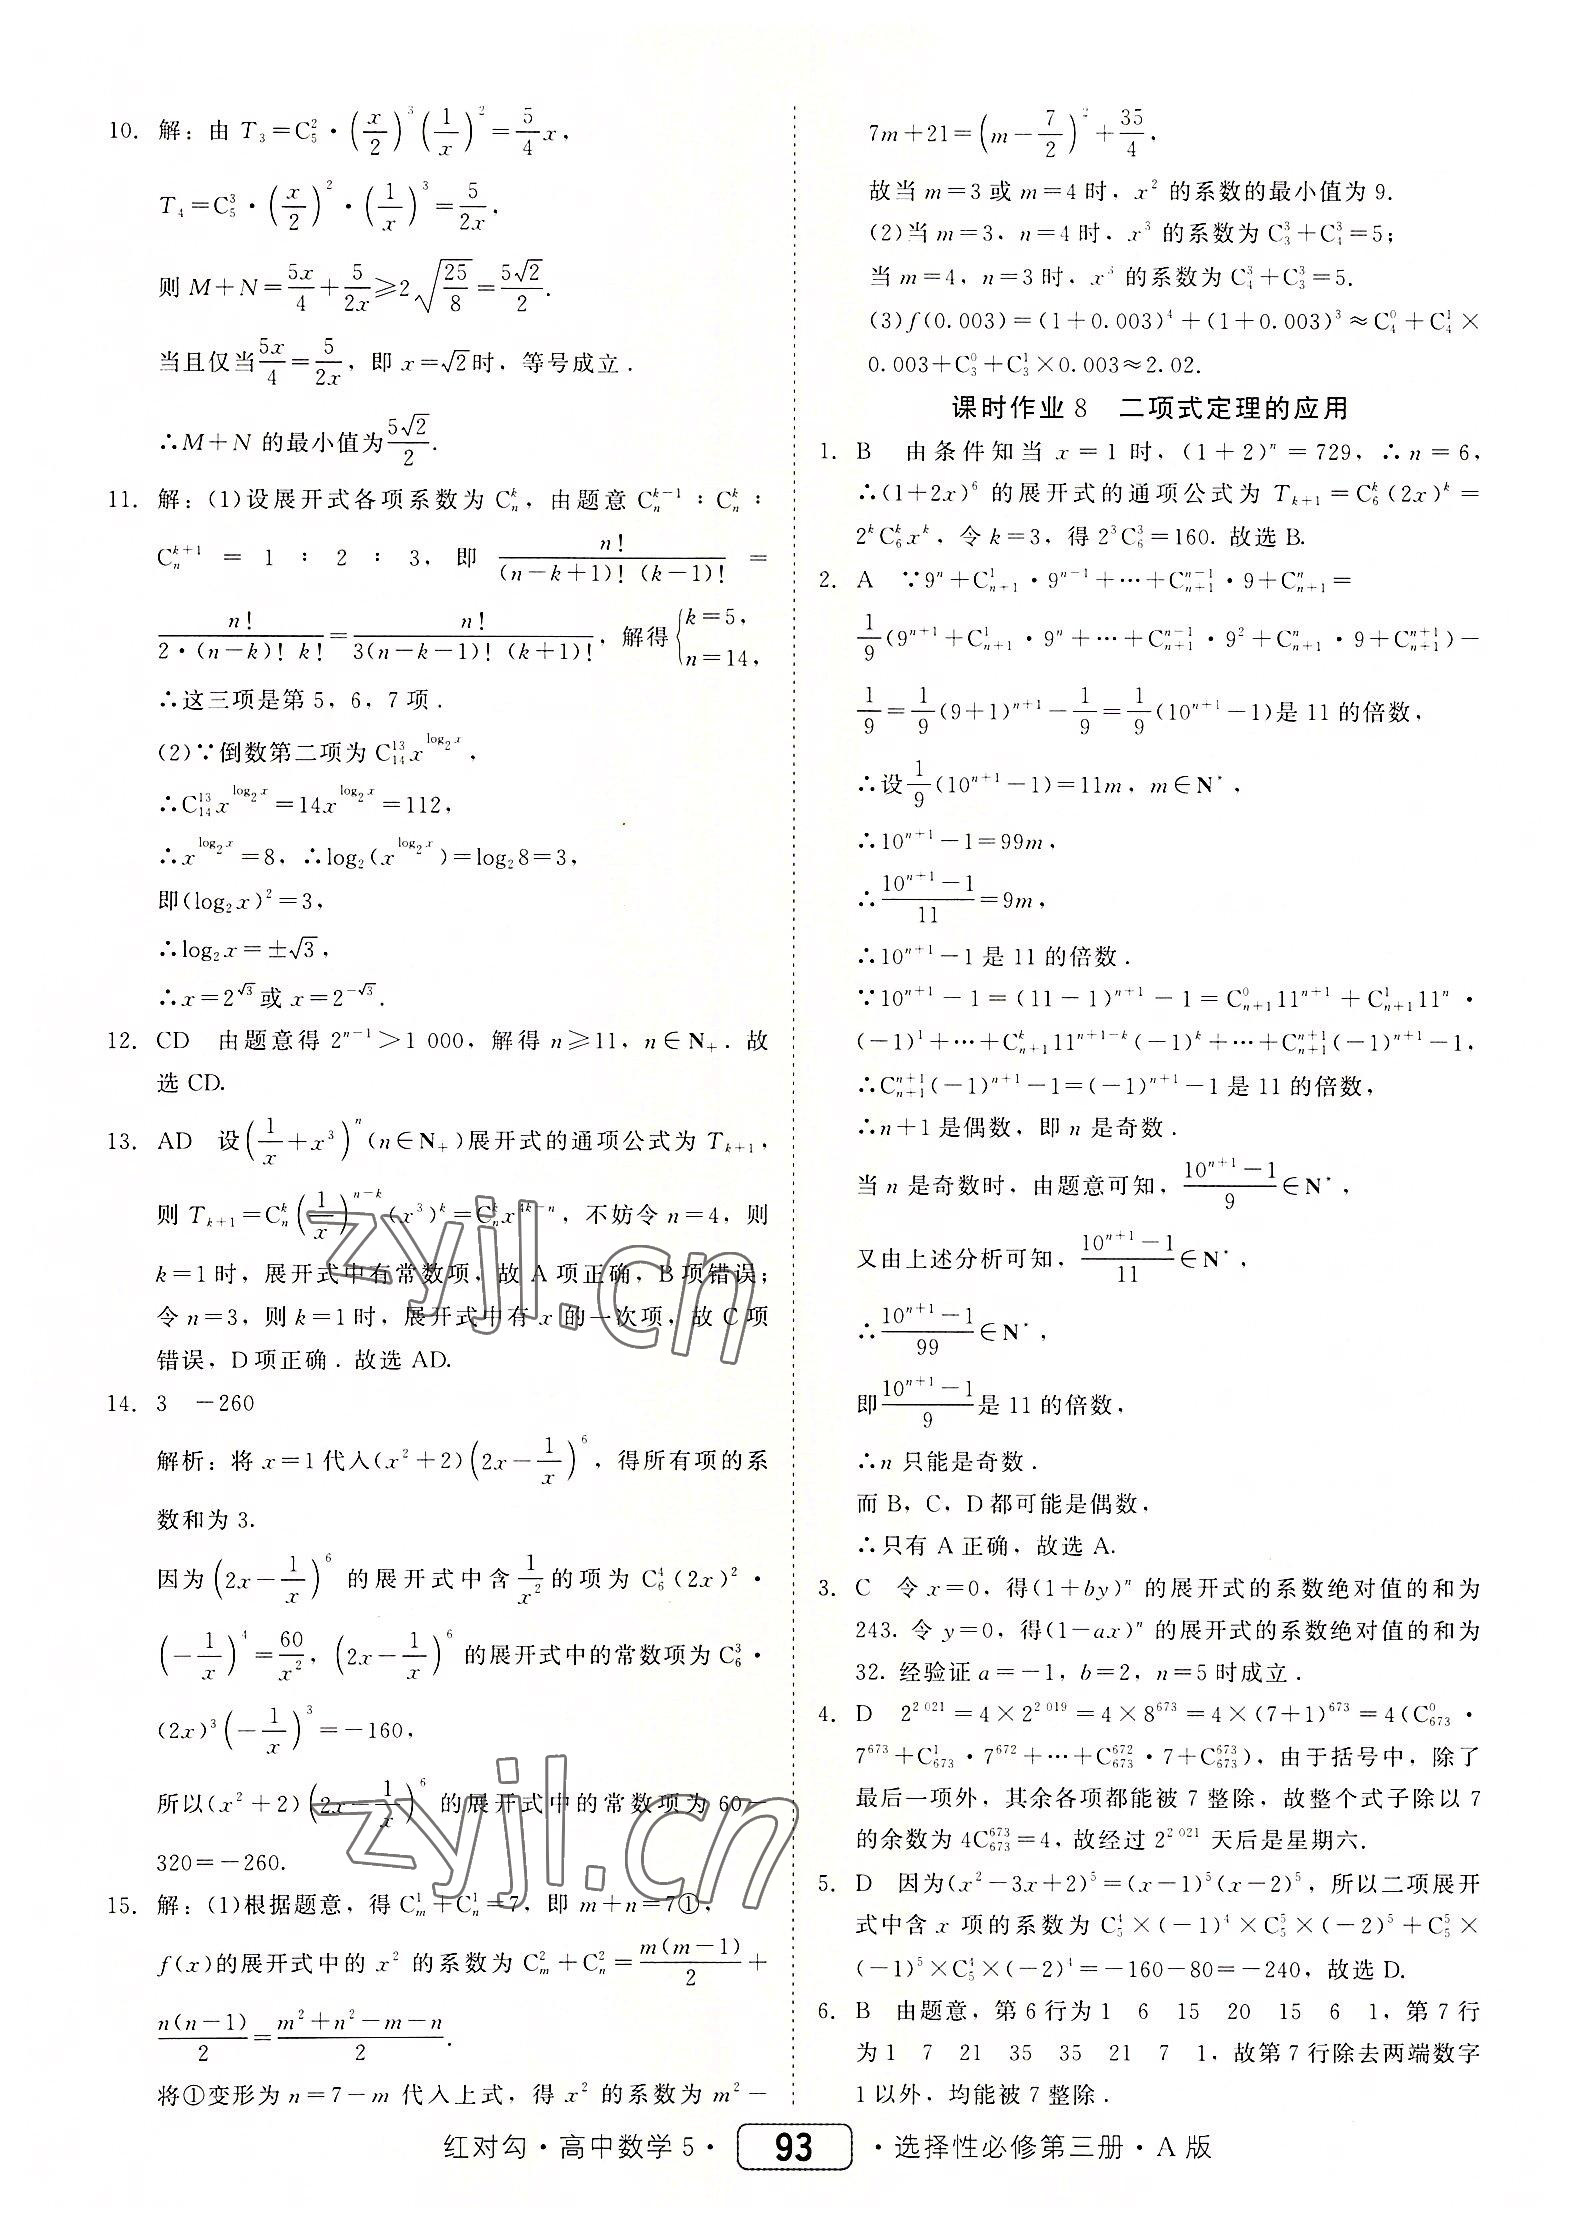 10. 解：由 T₃=C₅²·(x/2)³(1/x)²=5/4 x，
T₄=C₅³·(x/2)²·(1/x)³=5/2x，
则 M+N=5x/4+5/2x≥2√(25/8)=5√2/2.
当且仅当5x/4=5/2x，即 x=√2时，等号成立．
∴M+N 的最小值为5√2/2.
11. 解：(1)设展开式各项系数为 Cₙᵏ，由题意 Cₙᵏ⁻¹∶Cₙᵏ∶
Cₙᵏ⁺¹ = 1 ∶ 2 ∶ 3，即 n!/((n-k+1)! (k-1)!) =
n!/(2·(n-k)! k!)=n!/(3(n-k-1)! (k+1)!)，解得{k=5，n=14，
∴这三项是第 5，6，7 项．
(2)∵倒数第二项为 C₁₄¹³x^(log₂x)，
∴C₁₄¹³x^(log₂x)=14x^(log₂x)=112，
∴x^(log₂x)=8，∴log₂(x^(log₂x))=log₂8=3，
即(log₂x)²=3，
∴log₂x=±√3，
∴x=2^(√3)或 x=2^(-√3).
12. CD 由题意得 2ⁿ⁻¹>1 000，解得 n≥11，n∈N₊．故
选 CD.
13. AD 设(1/x+x³)ⁿ(n∈N₊)展开式的通项公式为 Tₖ₊₁，
则 Tₖ₊₁=Cₙᵏ(1/x)ⁿ⁻ᵏ(x³)ᵏ=Cₙᵏx⁴ᵏ⁻ⁿ，不妨令 n=4，则
k=1时，展开式中有常数项，故 A 项正确，B 项错误；
令 n=3，则 k=1时，展开式中有 x 的一次项，故 C 项
错误，D 项正确．故选 AD.
14. 3 -260
解析：将 x=1代入(x²+2)(2x-1/x)⁶，得所有项的系
数和为 3.
因为(2x-1/x)⁶ 的展开式中含1/x²的项为 C₆⁴(2x)²·
(-1/x)⁴=60/x²，(2x-1/x)⁶ 的展开式中的常数项为 C₆³·
(2x)³(-1/x)³=-160，
所以(x²+2)(2x-1/x)⁶ 的展开式中的常数项为 60-
320=-260.
15. 解：(1)根据题意，得 Cₘ¹+Cₙ¹=7，即 m+n=7①，
f(x)的展开式中的 x² 的系数为 Cₘ²+Cₙ²=m(m-1)/2+
n(n-1)/2=(m²+n²-m-n)/2.
将①变形为 n=7-m 代入上式，得 x² 的系数为 m²-
7m+21=(m-7/2)²+35/4，
故当 m=3 或 m=4 时，x² 的系数的最小值为 9.
(2)当 m=3，n=4 时，x³ 的系数为 C₃³+C₄³=5；
当 m=4，n=3 时，x³ 的系数为 C₄³+C₃³=5.
(3)f(0.003)=(1+0.003)⁴+(1+0.003)³≈C₄⁰+C₄¹×
0.003+C₃⁰+C₃¹×0.003≈2.02.
课时作业 8 二项式定理的应用
1. B 由条件知当 x=1 时，(1+2)ⁿ=729，∴n=6，
∴(1+2x)⁶ 的展开式的通项公式为 Tₖ₊₁=C₆ᵏ(2x)ᵏ=
2ᵏC₆ᵏxᵏ，令 k=3，得 2³C₆³=160. 故选 B.
2. A ∵9ⁿ+Cₙ₊₁¹·9ⁿ⁻¹+…+Cₙ₊₁ⁿ⁻¹·9+Cₙ₊₁ⁿ=
1/9(9ⁿ⁺¹+Cₙ₊₁¹·9ⁿ+…+Cₙ₊₁ⁿ⁻¹·9²+Cₙ₊₁ⁿ·9+Cₙ₊₁ⁿ⁺¹)-
1/9=1/9(9+1)ⁿ⁺¹-1/9=1/9(10ⁿ⁺¹-1)是 11 的倍数，
∴设1/9(10ⁿ⁺¹-1)=11m，m∈N*，
∴10ⁿ⁺¹-1=99m，
∴(10ⁿ⁺¹-1)/11=9m，
∴10ⁿ⁺¹-1是 11 的倍数．
∵10ⁿ⁺¹-1=(11-1)ⁿ⁺¹-1=Cₙ₊₁⁰11ⁿ⁺¹+Cₙ₊₁¹11ⁿ·
(-1)¹+…+Cₙ₊₁ᵏ11ⁿ⁺¹⁻ᵏ(-1)ᵏ+…+Cₙ₊₁ⁿ⁺¹(-1)ⁿ⁺¹-1，
∴Cₙ₊₁ⁿ⁺¹(-1)ⁿ⁺¹-1=(-1)ⁿ⁺¹-1 是 11 的倍数，
∴n+1 是偶数，即 n 是奇数．
当 n 是奇数时，由题意可知，(10ⁿ⁺¹-1)/9∈N*，
又由上述分析可知，(10ⁿ⁺¹-1)/11∈N*，
∴(10ⁿ⁺¹-1)/99∈N*，
即(10ⁿ⁺¹-1)/9是 11 的倍数，
∴n 只能是奇数．
而 B，C，D都可能是偶数，
∴只有 A 正确，故选 A.
3. C 令 x=0，得(1+by)ⁿ 的展开式的系数绝对值的和为
243. 令 y=0，得(1-ax)ⁿ 的展开式的系数绝对值的和为
32. 经验证 a=-1，b=2，n=5 时成立．
4. D 2²⁰²¹=4×2²⁰¹⁹=4×8⁶⁷³=4×(7+1)⁶⁷³=4(C₆₇₃⁰·
7⁶⁷³+C₆₇₃¹·7⁶⁷²+…+C₆₇₃⁶⁷²·7+C₆₇₃⁶⁷³)，由于括号中，除了
最后一项外，其余各项都能被 7 整除，故整个式子除以 7
的余数为 4C₆₇₃⁶⁷³=4，故经过 2²⁰²¹ 天后是星期六．
5. D 因为(x²-3x+2)⁵=(x-1)⁵(x-2)⁵，所以二项展开
式中含 x 项的系数为 C₅⁴×(-1)⁴×C₅⁵×(-2)⁵+C₅⁵×
(-1)⁵×C₅⁴×(-2)⁴=-160-80=-240，故选 D.
6. B 由题意，第 6 行为 1 6 15 20 15 6 1，第 7 行
为 1 7 21 35 35 21 7 1，故第 7 行除去两端数字
1 以外，均能被 7 整除．
红对勾·高中数学 5· 93 ·选择性必修第三册·A 版
zyjl.cn
zyjl.cn